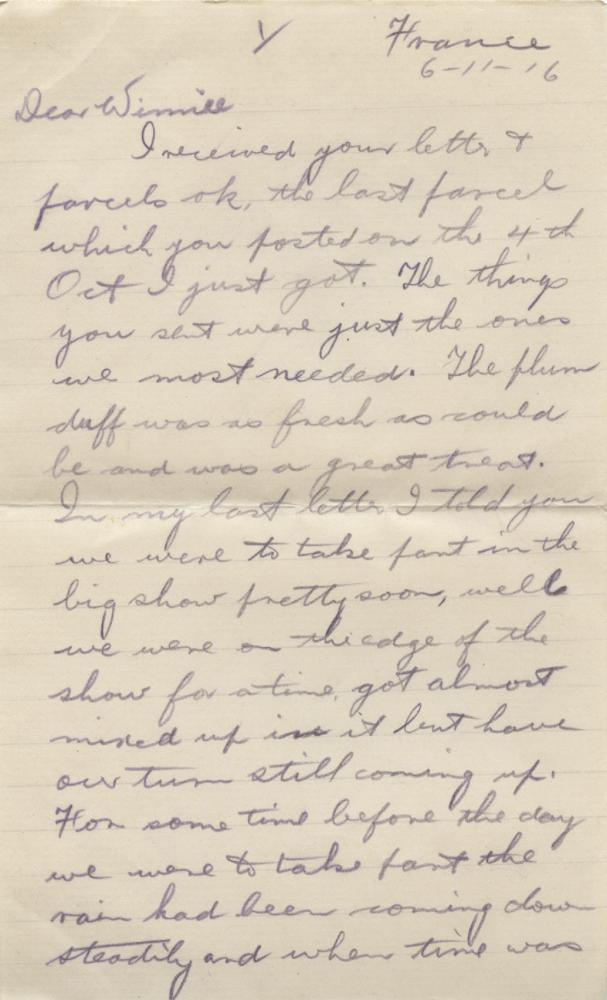 France
6-11-16
Dear Winnie
I received your letter &
parcels ok, the last parcel
which you posted on the 4th
Oct I just got. The things
you sent were just the ones
we most needed. The plum
duff was as fresh as could
be and was a great treat.
In my last letter I told you
we were to take part in the
big show pretty soon, well
we were on the edge of the
show for a time, got almost
mixed up in it but have
our turn still coming up.
For some time before the day
we were to take part the
rain had been coming down
steadily and when time was